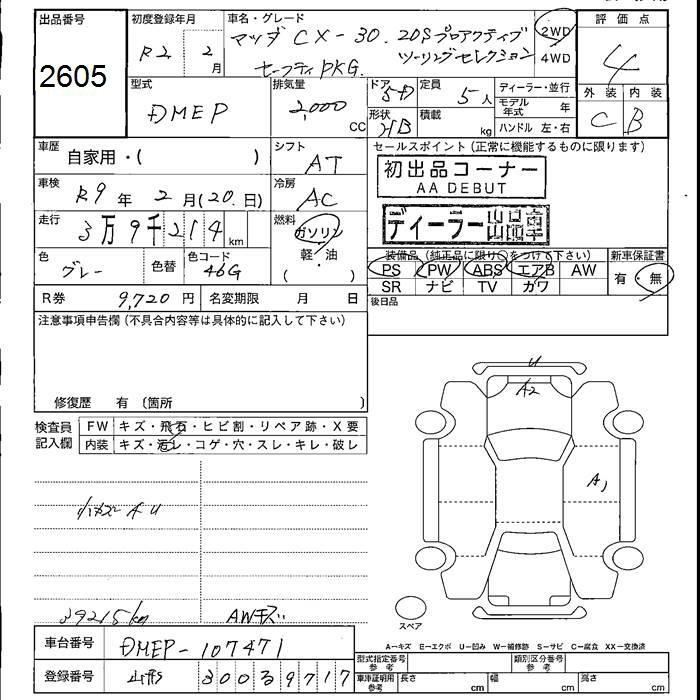 出品番号
2605
初度登録年月
R2 2月
車名・グレード
マツダ CX-30. 20S プロアクティブ
ツーリングセレクション
セーフティPKG.
2WD
4WD
評価点
4
外装 内装
C B
型式
DMEP
排気量
2,000 CC
ドア
5D
形状
HB
定員
5人
積載 kg
ディーラー・並行
モデル年式 年
ハンドル 左・右
車歴
自家用・( )
シフト
AT
セールスポイント(正常に機能するものに限ります)
初出品コーナー
AA DEBUT
ディーラー
車検
R9年 2月(20日)
冷房
AC
走行
3万9千214km
燃料
ガソリン
軽・油
( )
色
グレー
色替
色コード
46G
装備品(純正品に限り○をつけて下さい)
PS PW ABS エアB AW
SR ナビ TV カワ
新車保証書
有・無
R券 9,720円
名変期限 月 日
後日品
注意事項申告欄(不具合内容等は具体的に記入して下さい)
修復歴 有(箇所 )
検査員記入欄
FW キズ・飛石・ヒビ割・リペア跡・X要
内装 キズ・汚レ・コゲ・穴・スレ・キレ・破レ
小キズ A U
39215km
AWキズ
U
A2
A1
スペア
A=キズ E=エクボ U=凹み W=補修跡 S=サビ C=腐食 XX=交換済
車台番号
DMEP-107471
登録番号
山形 300 3 9717
型式指定番号
参考
類別区分番号
参考
車庫証明用
参考
長さ cm
幅 cm
高さ cm